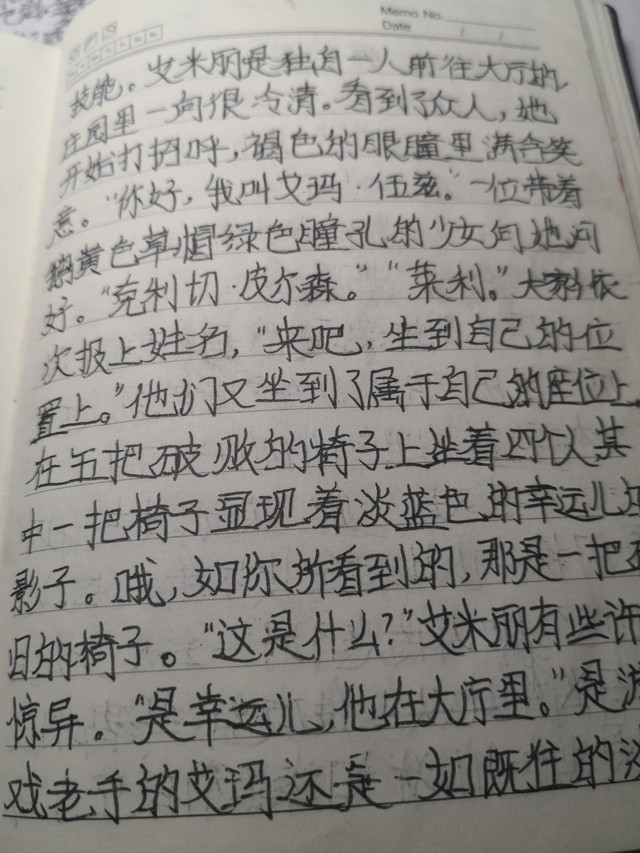 Memo No.
Date / /
技能。艾米丽是独自一人前往大厅的,
庄园里一向很冷清。看到了众人,她
开始打招呼,褐色的眼瞳里满含笑
意。“你好,我叫艾玛·伍兹。”一位带着
鹅黄色草帽绿色瞳孔的少女向她问
好。“克利切·皮尔森。”“莱利。”大家依
次报上姓名,“来吧,坐到自己的位
置上。”他们又坐到了属于自己的座位上。
在五把破败的椅子上坐着四个人其
中一把椅子显现着淡蓝色的幸运儿的
影子。哦,如你所看到的,那是一把
旧的椅子。“这是什么?”艾米丽有些许
惊异。“是幸运儿,他在大厅里。”是游
戏老手的艾玛还是一如既往的淡